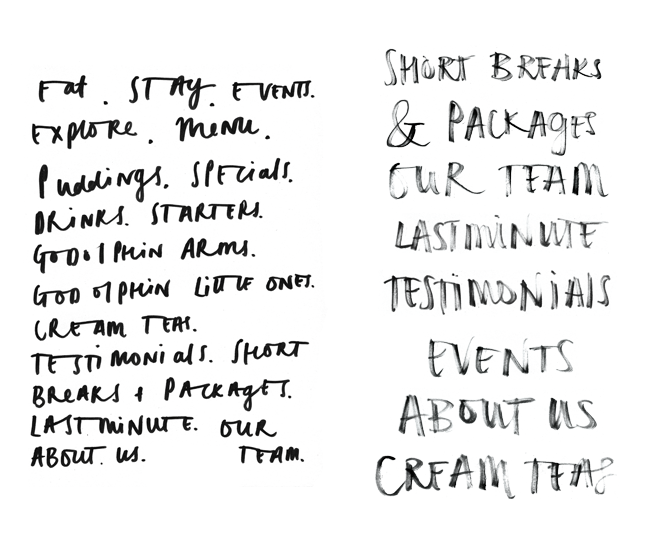 Eat. STAY. EVENTS.
EXPLORE. Menu.
Puddings. SPECials.
DRiNKS. STARTERS.
GODOlPHiN ARMS.
GODOlPHiN LiTTLE ONES.
CREAM TEAS.
TESTiMONials. SHORT
BREAKS + PACKAGES.
LASTMiNUTE. OUR
ABOUT US. TEAM.
SHORT BREAKS
& PACKAGES
OUR TEAM
LASTMiNUTE
TESTiMONiAlS
EVENTS
ABOUT US
CREAM TEAS